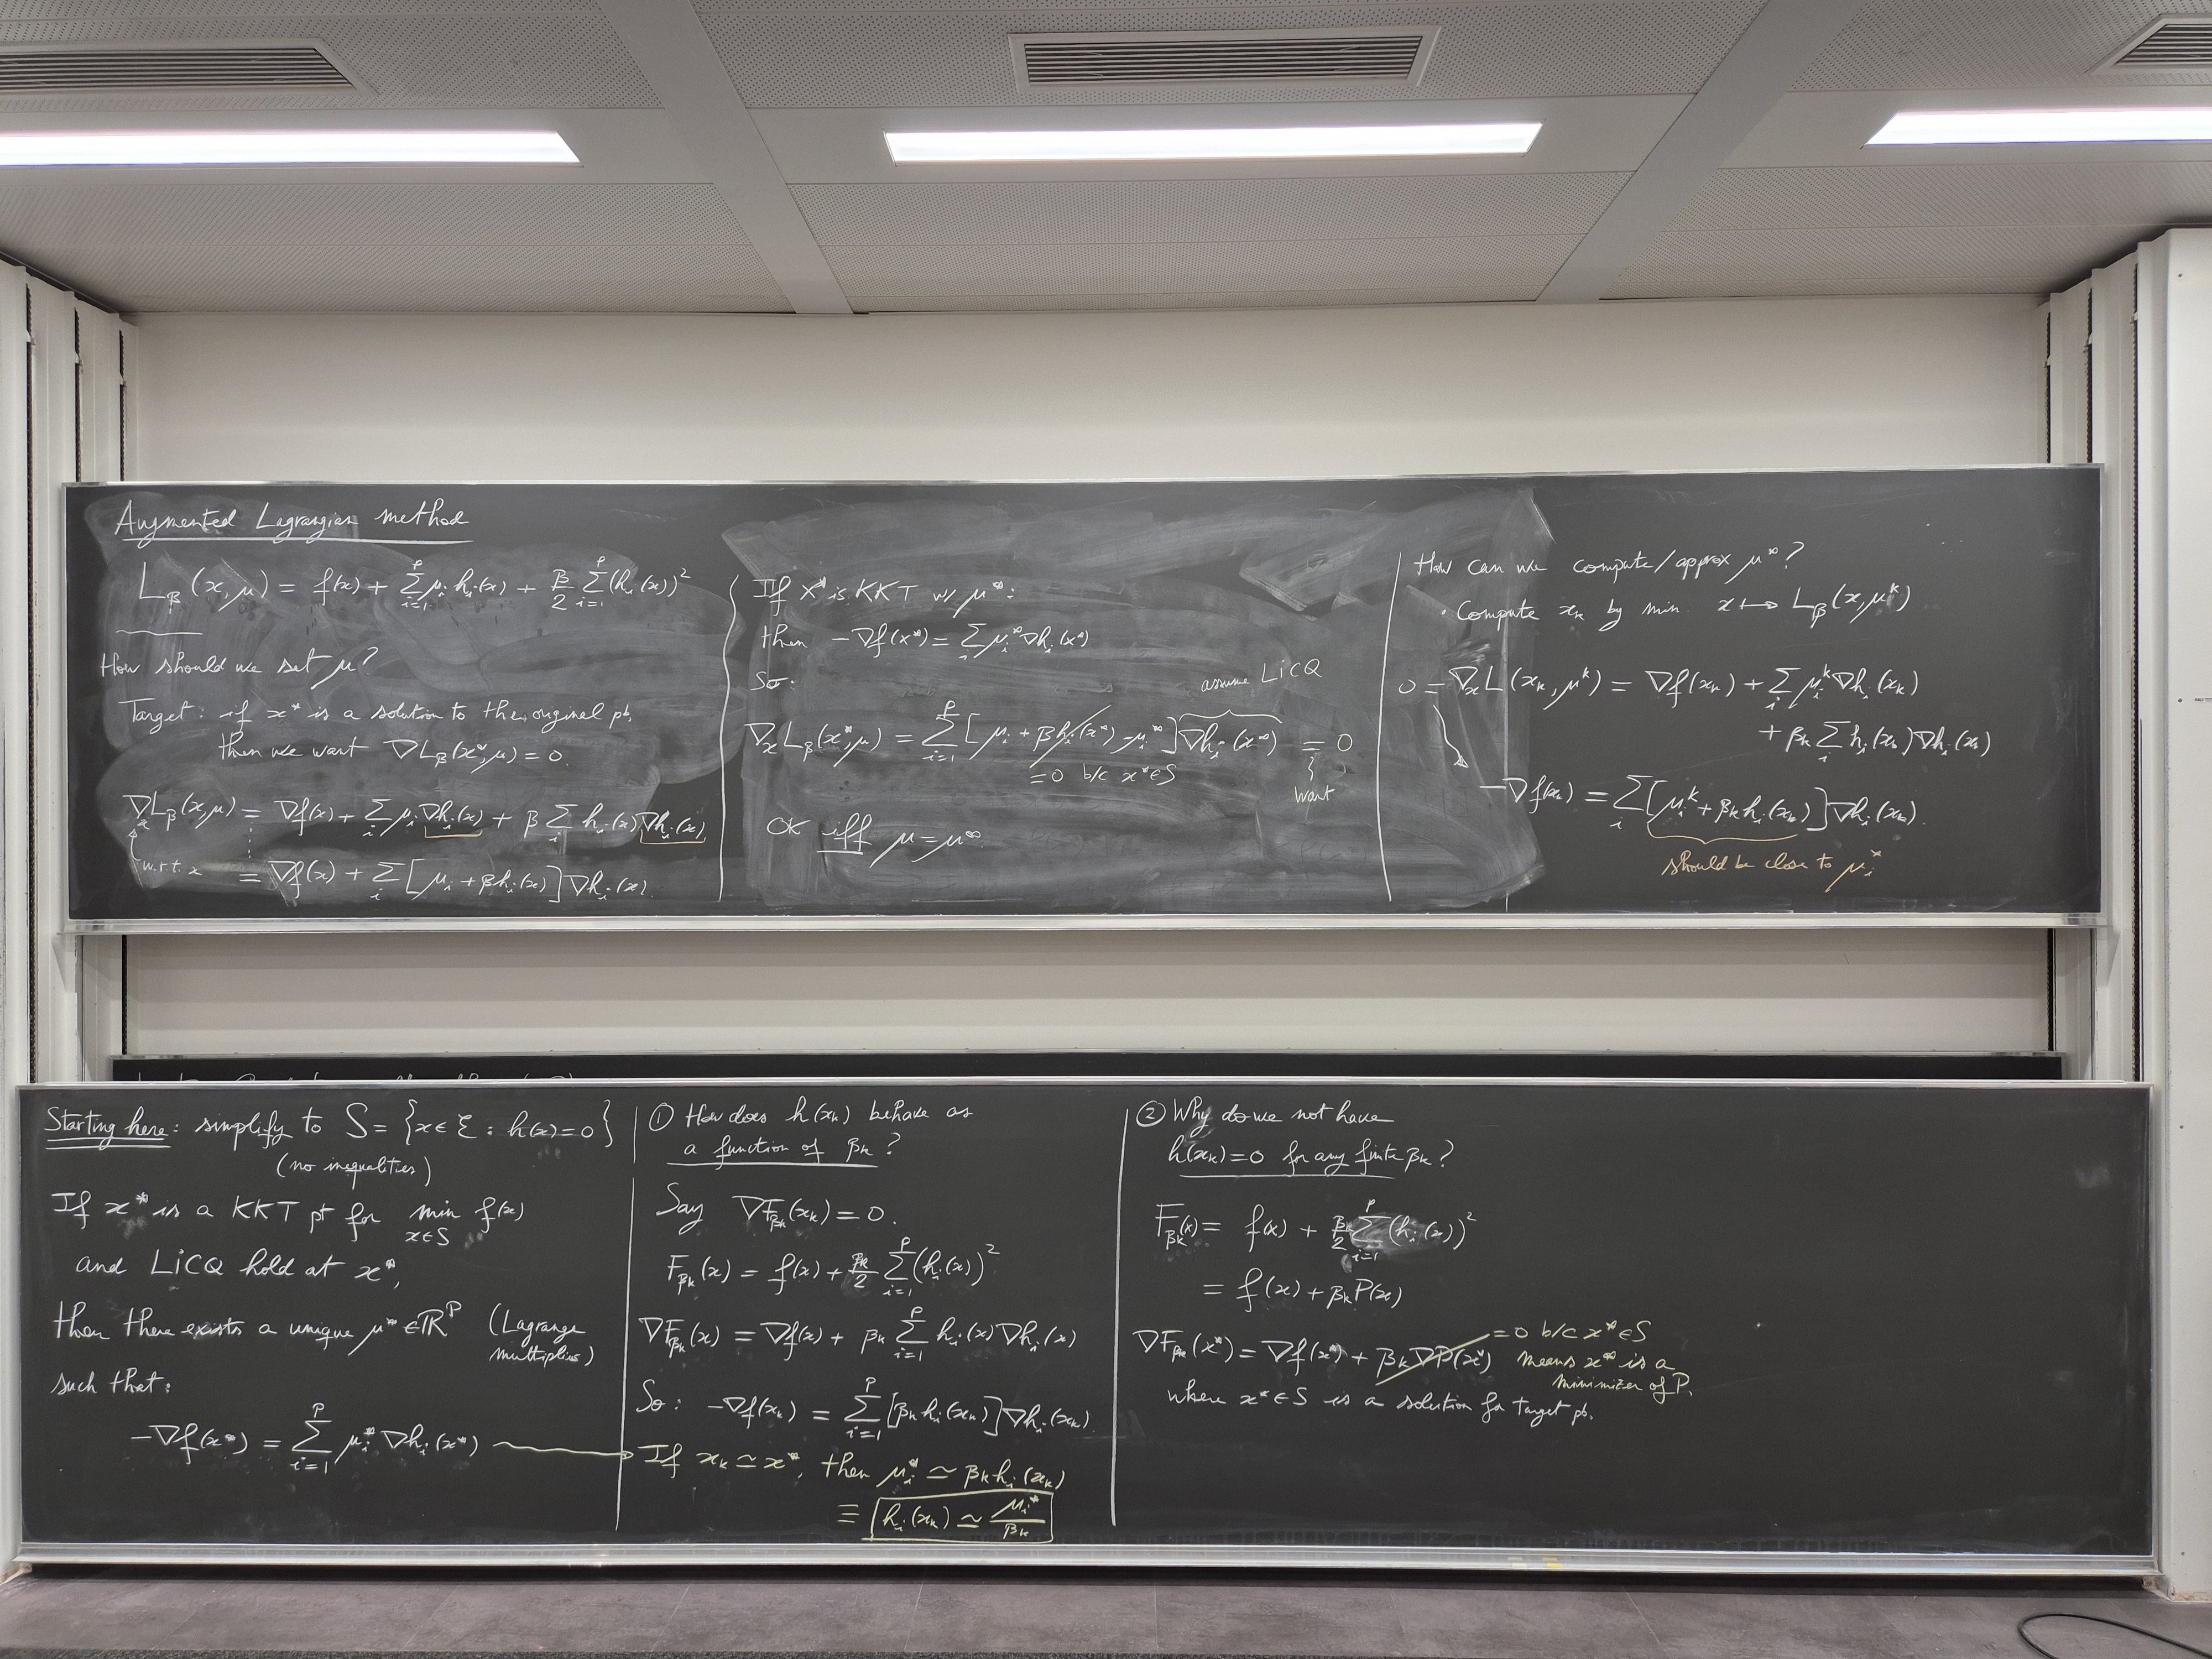 Augmented Lagrangian method
L_β(x, μ) = f(x) + Σ_{i=1}^p μ_i h_i(x) + β/2 Σ_{i=1}^p (h_i(x))²
How should we set μ?
Target: if x* is a solution to the original pb,
then we want ∇L_β(x*, μ) = 0.
∇_x L_β(x, μ) = ∇f(x) + Σ_i μ_i ∇h_i(x) + β Σ_i h_i(x) ∇h_i(x)
w.r.t. x
= ∇f(x) + Σ_i [μ_i + βh_i(x)] ∇h_i(x)
If x* is KKT w/ μ*:
then −∇f(x*) = Σ_i μ_i* ∇h_i(x*)
So:
assume LICQ
∇_x L_β(x*, μ) = Σ_{i=1}^p [μ_i + βh_i(x*) − μ_i*] ∇h_i(x*) = 0
= 0 b/c x* ∈ S
want
OK iff μ = μ*
How can we compute/approx μ*?
· Compute x_k by min x ↦ L_β(x, μ^k)
0 = ∇_x L(x_k, μ^k) = ∇f(x_k) + Σ_i μ_i^k ∇h_i(x_k)
+ β_k Σ_i h_i(x_k) ∇h_i(x_k)
−∇f(x_k) = Σ_i [μ_i^k + β_k h_i(x_k)] ∇h_i(x_k).
should be close to μ_i*
Starting here: simplify to S = {x ∈ ℰ : h(x) = 0}
(no inequalities)
If x* is a KKT pt for min_{x∈S} f(x)
and LICQ hold at x*,
then there exists a unique μ* ∈ ℝ^p (Lagrange
multiplies)
such that:
−∇f(x*) = Σ_{i=1}^p μ_i* ∇h_i(x*)
① How does h(x_k) behave as
a function of β_k?
Say ∇F_{β_k}(x_k) = 0.
F_{β_k}(x) = f(x) + β_k/2 Σ_{i=1}^p (h_i(x))²
∇F_{β_k}(x) = ∇f(x) + β_k Σ_{i=1}^p h_i(x) ∇h_i(x)
So: −∇f(x_k) = Σ_{i=1}^p [β_k h_i(x_k)] ∇h_i(x_k).
If x_k ≃ x*, then μ_i* ≃ β_k h_i(x_k)
≡ h_i(x_k) ≃ μ_i*/β_k
② Why do we not have
h(x_k) = 0 for any finite β_k?
F_{β_k}(x) = f(x) + β_k/2 Σ_{i=1}^p (h_i(x))²
= f(x) + β_k P(x)
∇F_{β_k}(x*) = ∇f(x*) + β_k ∇P(x*) = 0 b/c x* ∈ S
means x* is a
minimizer of P.
where x* ∈ S is a solution for target pb.